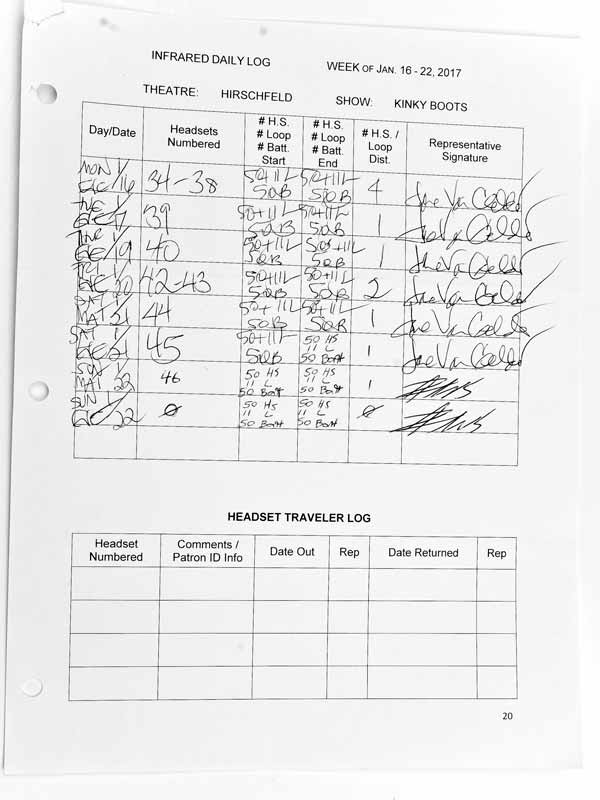 INFRARED DAILY LOG WEEK OF JAN. 16 - 22, 2017
THEATRE: HIRSCHFELD SHOW: KINKY BOOTS
Day/Date Headsets Numbered # H.S. # Loop # Batt. Start # H.S. # Loop # Batt. End # H.S. / Loop Dist. Representative Signature
MON 1/16 EVE 34-38 50+11L 50B 50+11L 50B 4
TUE 1/17 EVE 39 50+11L 50B 50+11L 50B 1
THR 1/19 EVE 40 50+11L 50B 50+11L 50B 1
FRI 1/20 EVE 42-43 50+11L 50B 50+11L 50B 2
SAT 1/21 MAT 44 50+11L 50B 50+11L 50B 1
SAT 1/21 EVE 45 50+11L 50B 50 HS 11 L 50 Batt 1
SUN MAT 22 46 50 HS 11 L 50 Batt 50 HS 11 L 50 Batt 1
SUN 1/22 EVE Ø 50 HS 11 L 50 Batt 50 HS 11 L 50 Batt Ø
HEADSET TRAVELER LOG
Headset Numbered Comments / Patron ID Info Date Out Rep Date Returned Rep
20